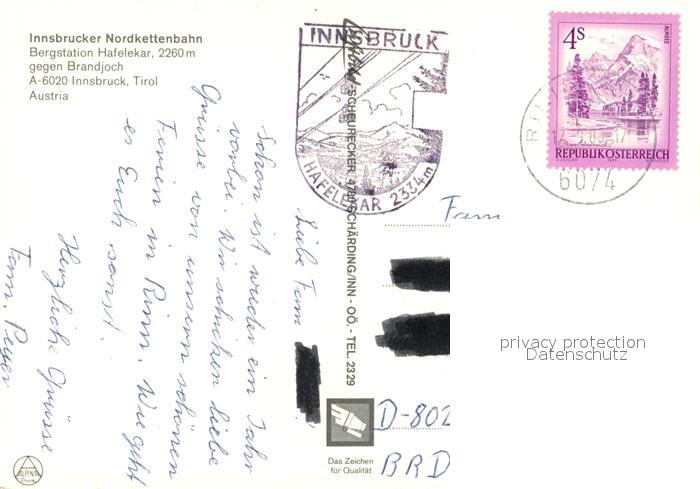 Innsbrucker Nordkettenbahn
Bergstation Hafelekar, 2260 m
gegen Brandjoch
A-6020 Innsbruck, Tirol
Austria
INNSBRUCK
HAFELEKAR 2334m
SCHEURECKER 4780 SCHÄRDING/INN - OÖ. - TEL. 2329
4S
ALMSEE
REPUBLIK ÖSTERREICH
6074
Liebe Fam
Schon ist wieder ein Jahr
vorbei. Wir schicken liebe
Grüsse von unseren schönen
Ferien in Rinn. Wie geht
es Euch sonst.
Herzliche Grüsse
Fam.
Fam
D-802
BRD
Das Zeichen
für Qualität
ALPINA
Druck
privacy protection
Datenschutz